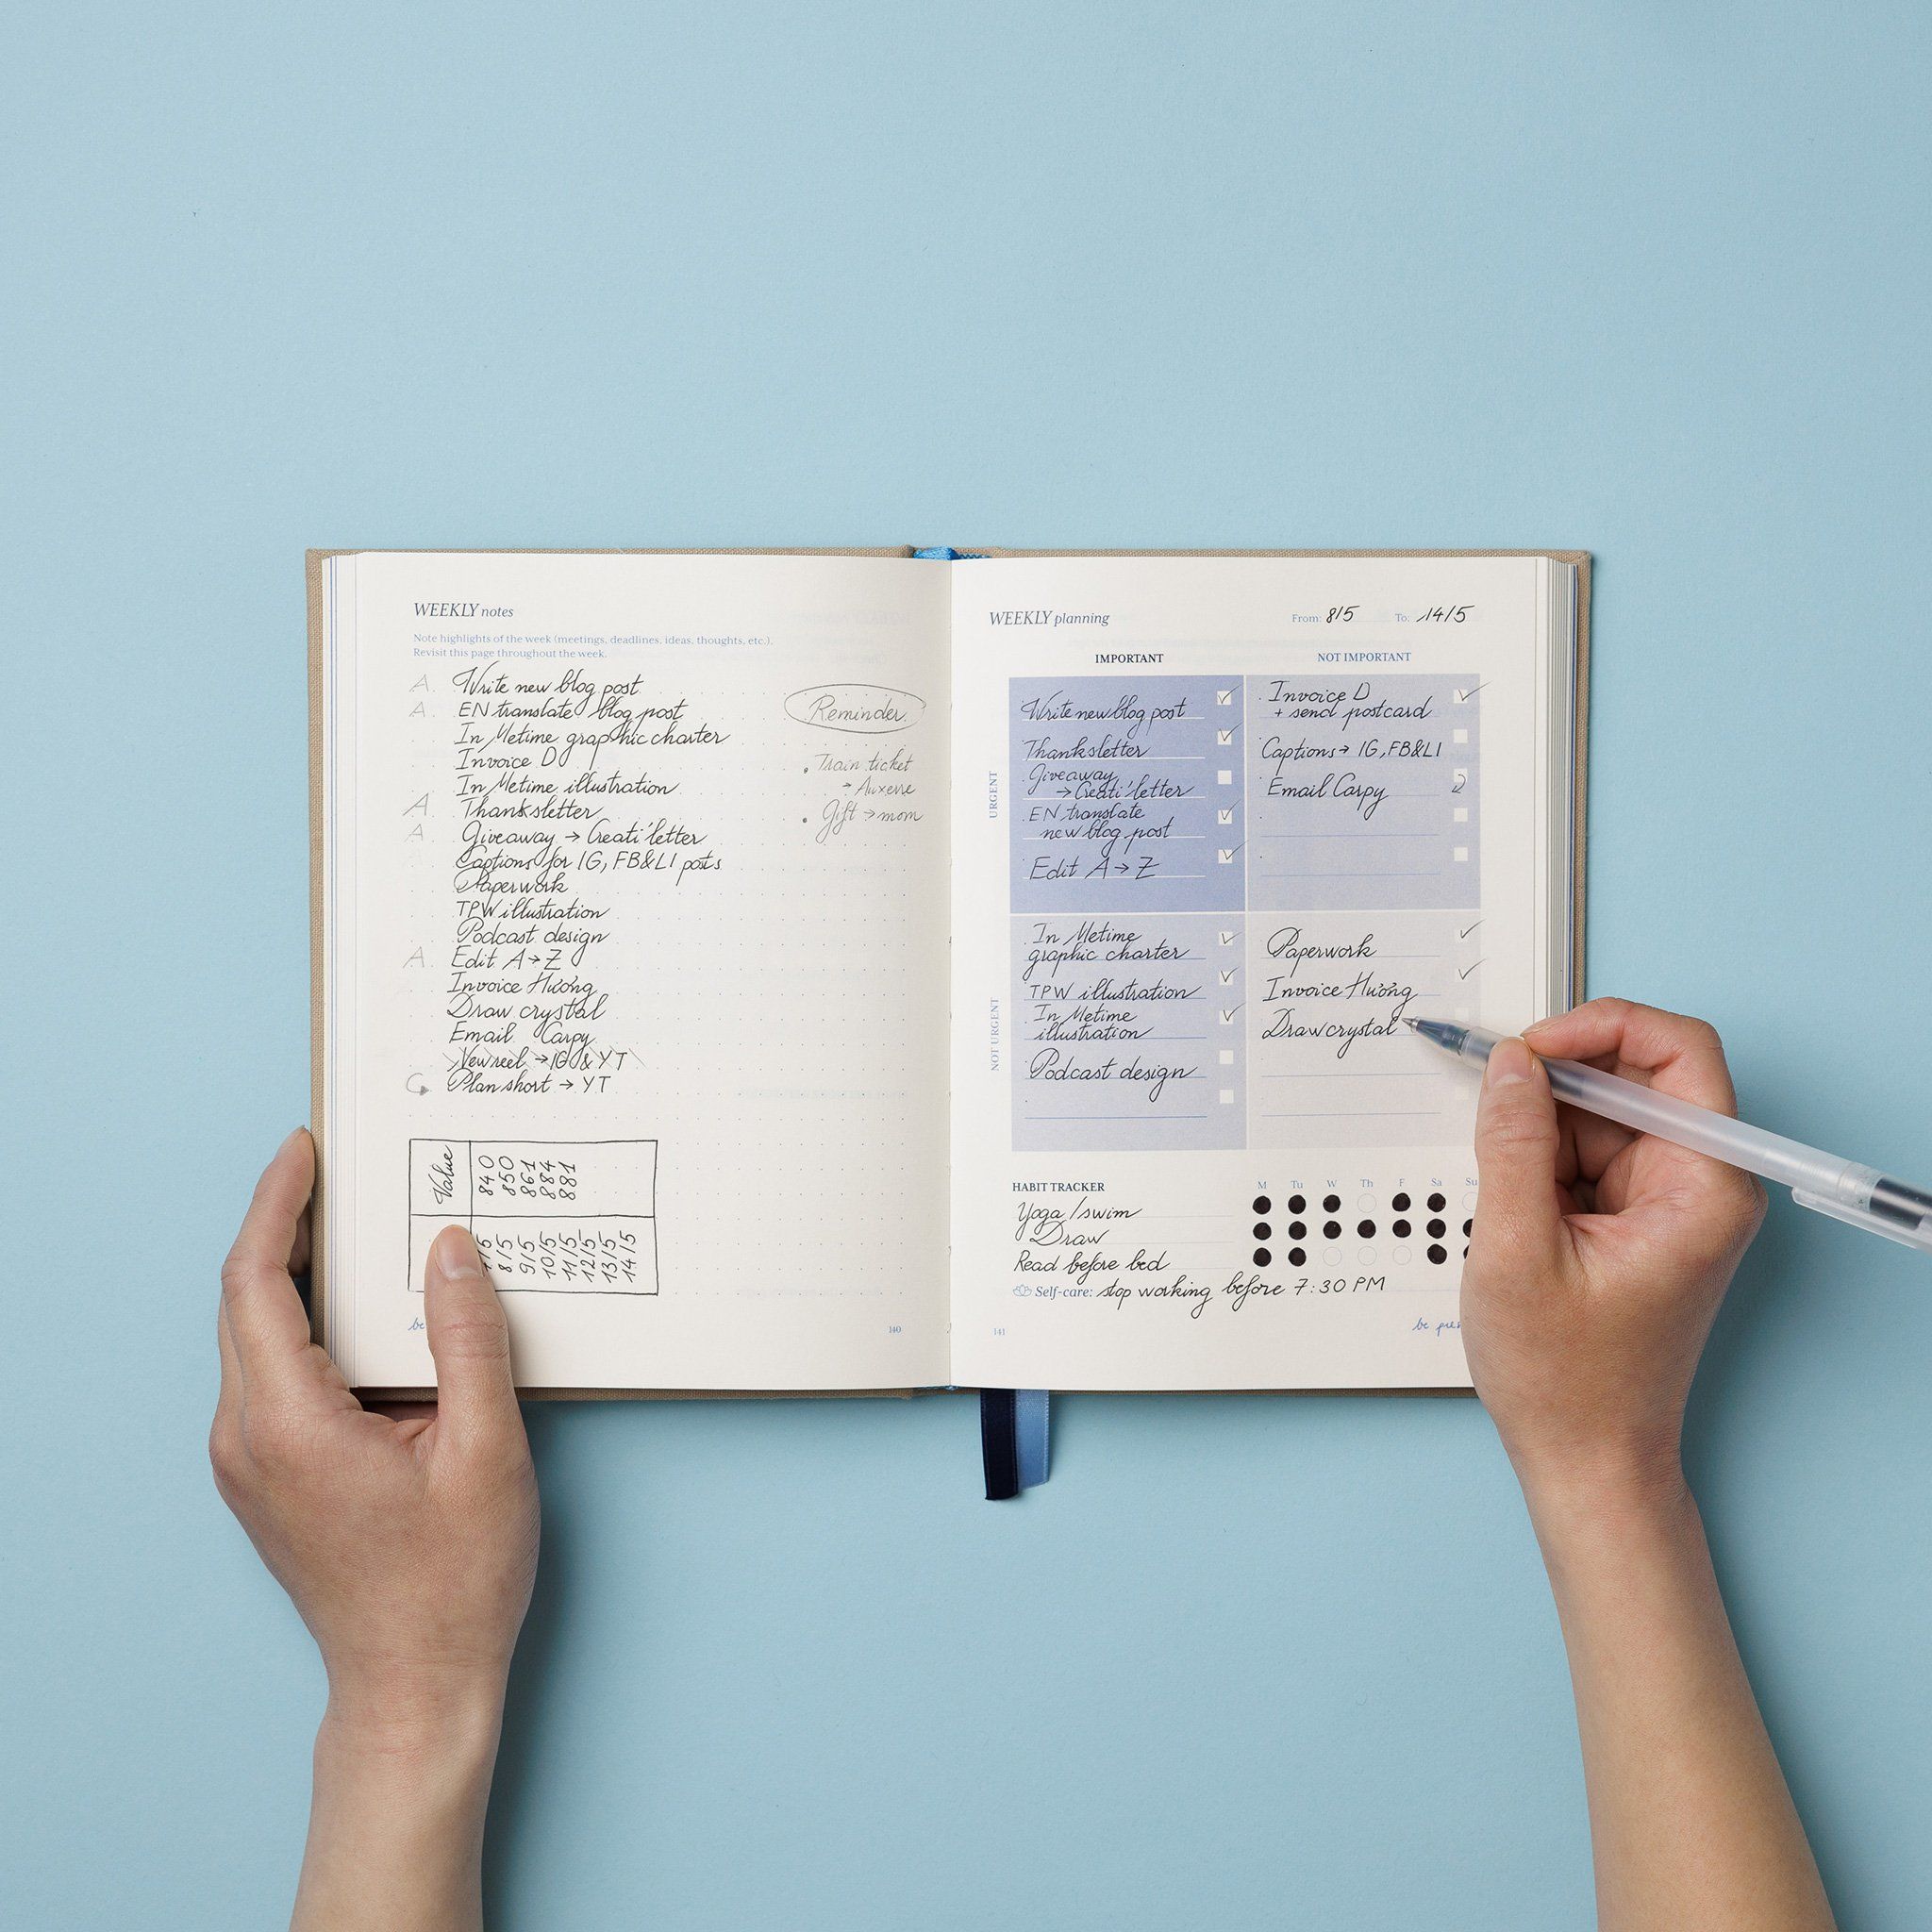 WEEKLY notes
Note highlights of the week (meetings, deadlines, ideas, thoughts, etc.).
Revisit this page throughout the week.
A. Write new blog post
A. EN translate blog post
In Metime graphic charter
Invoice D
In Metime illustration
A. Thanksletter
A. Giveaway → Creati'letter
Captions for IG, FB&LI posts
Paperwork
TPW illustration
Podcast design
A. Edit A→Z
Invoice Hương
Draw crystal
Email Carpy
New reel →IG & YT
Plan short → YT
Reminder
• Train ticket
→ Auxerre
• Gift → mom
Value
840
850
861
884
881
8/5
9/5
10/5
11/5
12/5
13/5
14/5
be
140
WEEKLY planning
From: 8/5 To: 14/5
IMPORTANT
NOT IMPORTANT
URGENT
Write new blog post
Thanksletter
Giveaway
→ Creati'letter
EN translate
new blog post
Edit A→Z
Invoice D
+ send postcard
Captions→ IG, FB&LI
Email Carpy
NOT URGENT
In Metime
graphic charter
TPW illustration
In Metime
illustration
Podcast design
Paperwork
Invoice Hương
Draw crystal
HABIT TRACKER M Tu W Th F Sa Su
Yoga/swim
Draw
Read before bed
Self-care: stop working before 7:30 PM
141
be